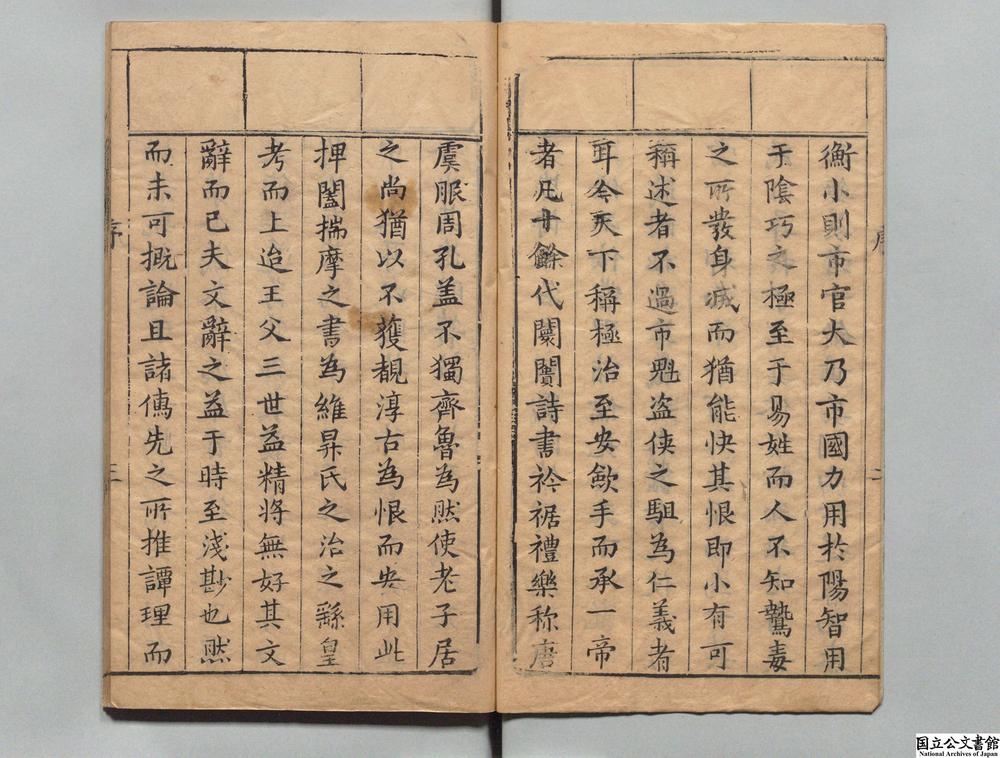 衡小則市官大乃市國力用扵陽智用
于陰巧之極至于易姓而人不知鷙毒
之所發身滅而猶能快其恨即小有可
稱述者不過市魁盗俠之駔為仁義者
耳今天下稱極治至安歛手而承一帝
者凡十餘代闤闠詩書衿裾禮樂称唐
虞服周孔盖不獨齊魯為然使老子居
之尚猶以不獲覩淳古為恨而安用此
押闔揣摩之書為維昇氏之治之繇皇
考而上迨王父三世益精将無好其文
辭而已夫文辭之益于時至淺尠也然
而未可概論且諸傳先之所推譚理而
序
二
序
三
国立公文書館
National Archives of Japan